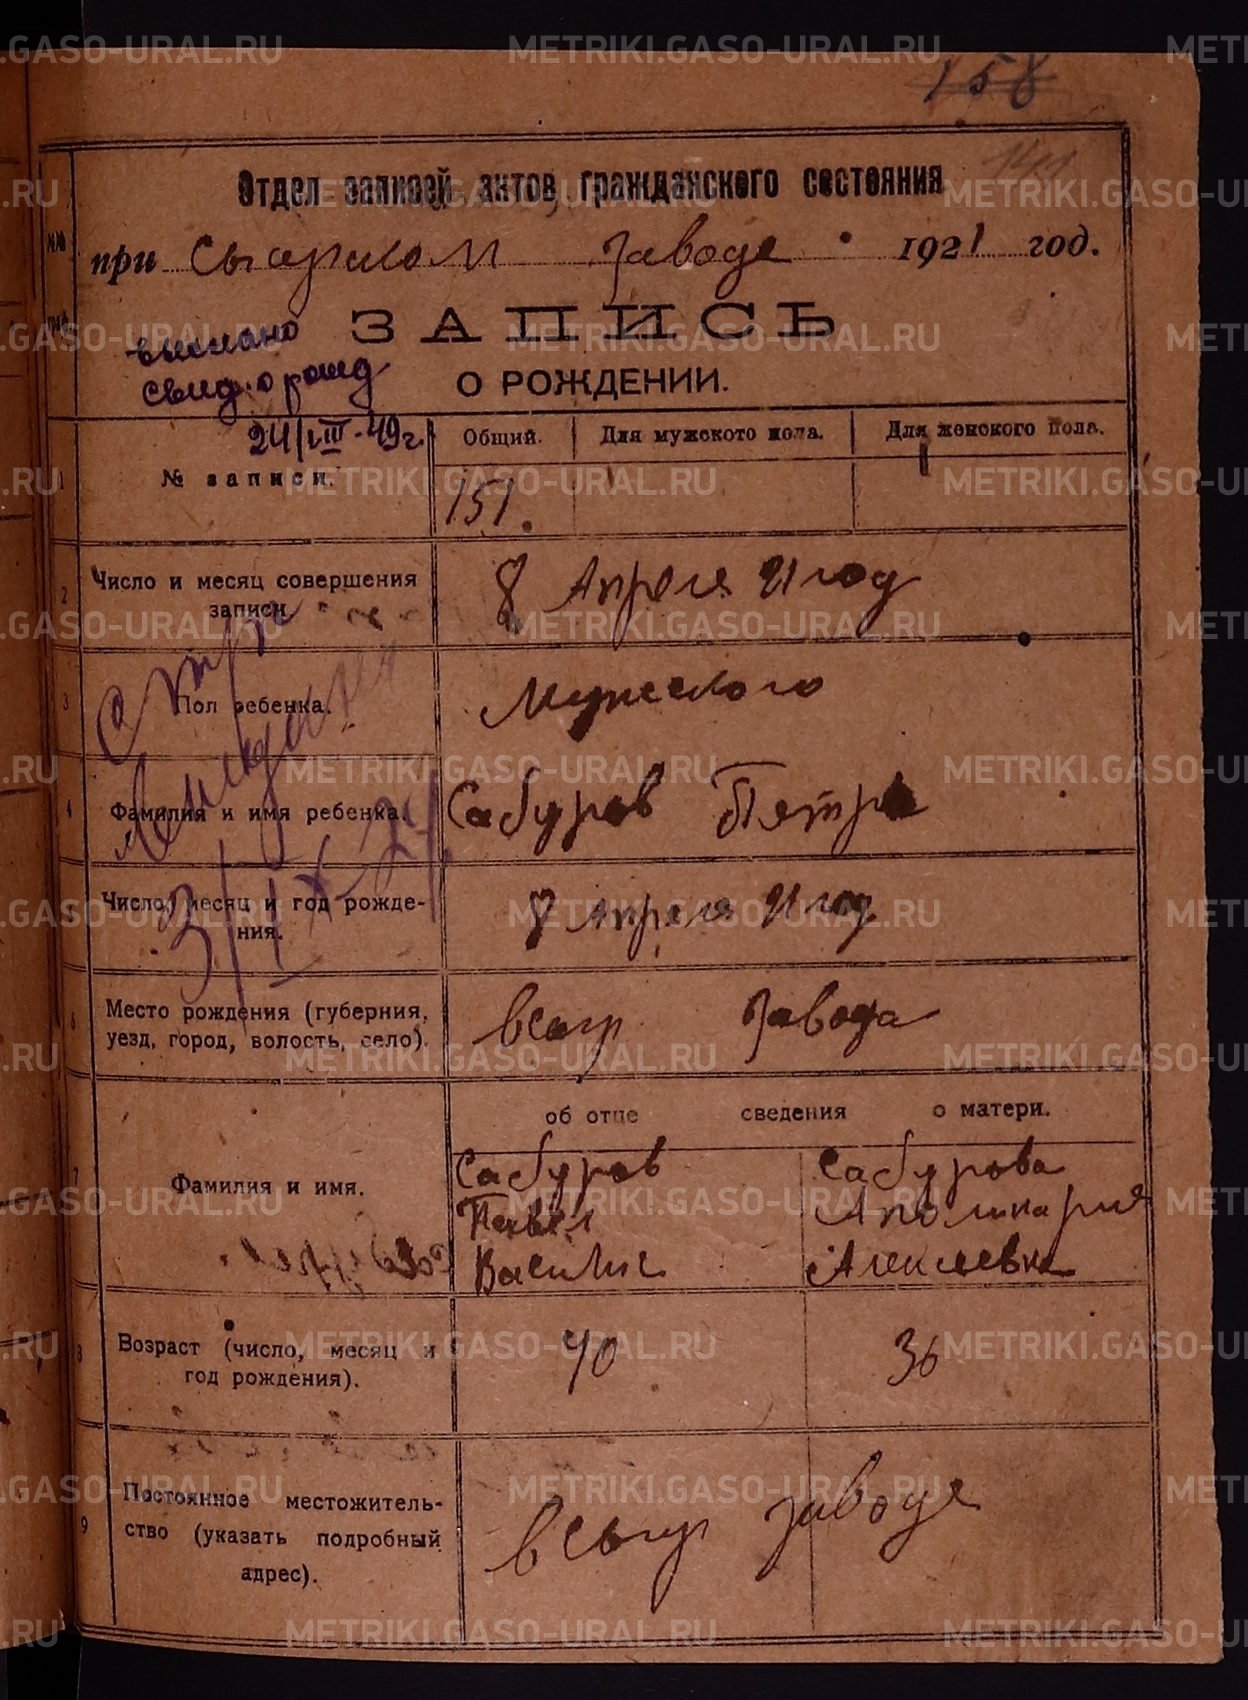 158
Отдел записей актов гражданского состояния
при Сысерском заводе 1921 год.
ЗАПИСЬ
выслано
свид. о рожд
О РОЖДЕНИИ.
24/VIII-49г.
Общий. Для мужского пола. Для женского пола.
1 № записи.
151.
2 Число и месяц совершения
записи.
8 Апреля 21 год
3 Пол ребенка.
Мужского
4 Фамилия и имя ребенка.
Сабуров Пятро
3/IX-24
5 Число, месяц и год рожде-
ния.
8 Апреля 21 год
6 Место рождения (губерния,
уезд, город, волость, село).
всыср завода
об отце сведения о матери.
7 Фамилия и имя.
Сабуров Сабурова
Павел Аполинария
Василис Алексевна
8 Возраст (число, месяц и
год рождения).
40 36
9 Постоянное местожитель-
ство (указать подробный
адрес).
в сысер заводе
METRIKI.GASO-URAL.RU